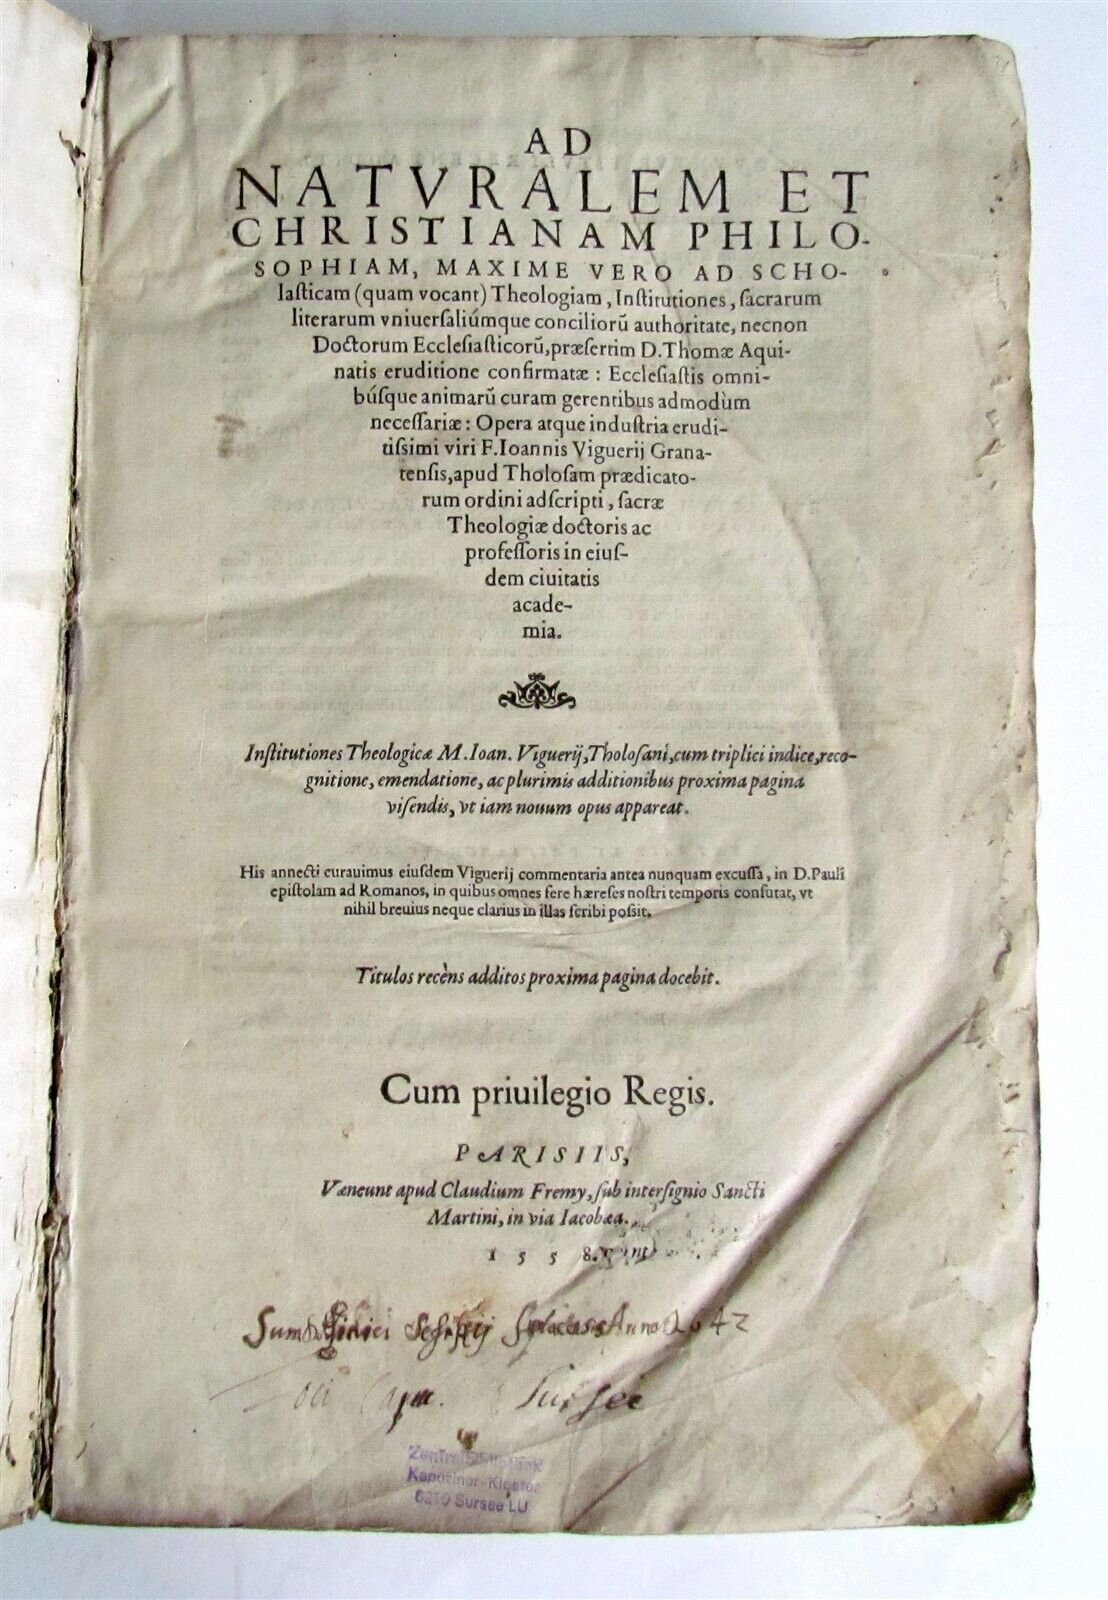 AD
NATVRALEM ET
CHRISTIANAM PHILO-
SOPHIAM, MAXIME VERO AD SCHO-
lasticam (quam vocant) Theologiam, Institutiones, sacrarum
literarum vniuersaliúmque conciliorũ authoritate, necnon
Doctorum Ecclesiasticorũ, præsertim D. Thomæ Aqui-
natis eruditione confirmatæ: Ecclesiastis omni-
búsque animarũ curam gerentibus admodùm
necessariæ: Opera atque industria erudi-
tissimi viri F. Ioannis Viguerij Grana-
tensis, apud Tholosam prædicato-
rum ordini adscripti, sacræ
Theologiæ doctoris ac
professoris in eius-
dem ciuitatis
acade-
mia.
Institutiones Theologicæ M. Ioan. Viguerij, Tholosani, cum triplici indice, reco-
gnitione, emendatione, ac plurimis additionibus proxima pagina
visendis, vt iam nouum opus appareat.
His annecti curauimus eiusdem Viguerij commentaria antea nunquam excussa, in D. Pauli
epistolam ad Romanos, in quibus omnes fere hæreses nostri temporis confutat, vt
nihil breuius neque clarius in illas scribi possit.
Titulos recèns additos proxima pagina docebit.
Cum priuilegio Regis.
PARISIIS,
Væneunt apud Claudium Fremy, sub intersignio Sancti
Martini, in via Iacobæa.
1558.
Sum Anno 1642
Loci Capu.
Zentralbibliothek
Kapuziner-Kloster
6210 Sursee LU